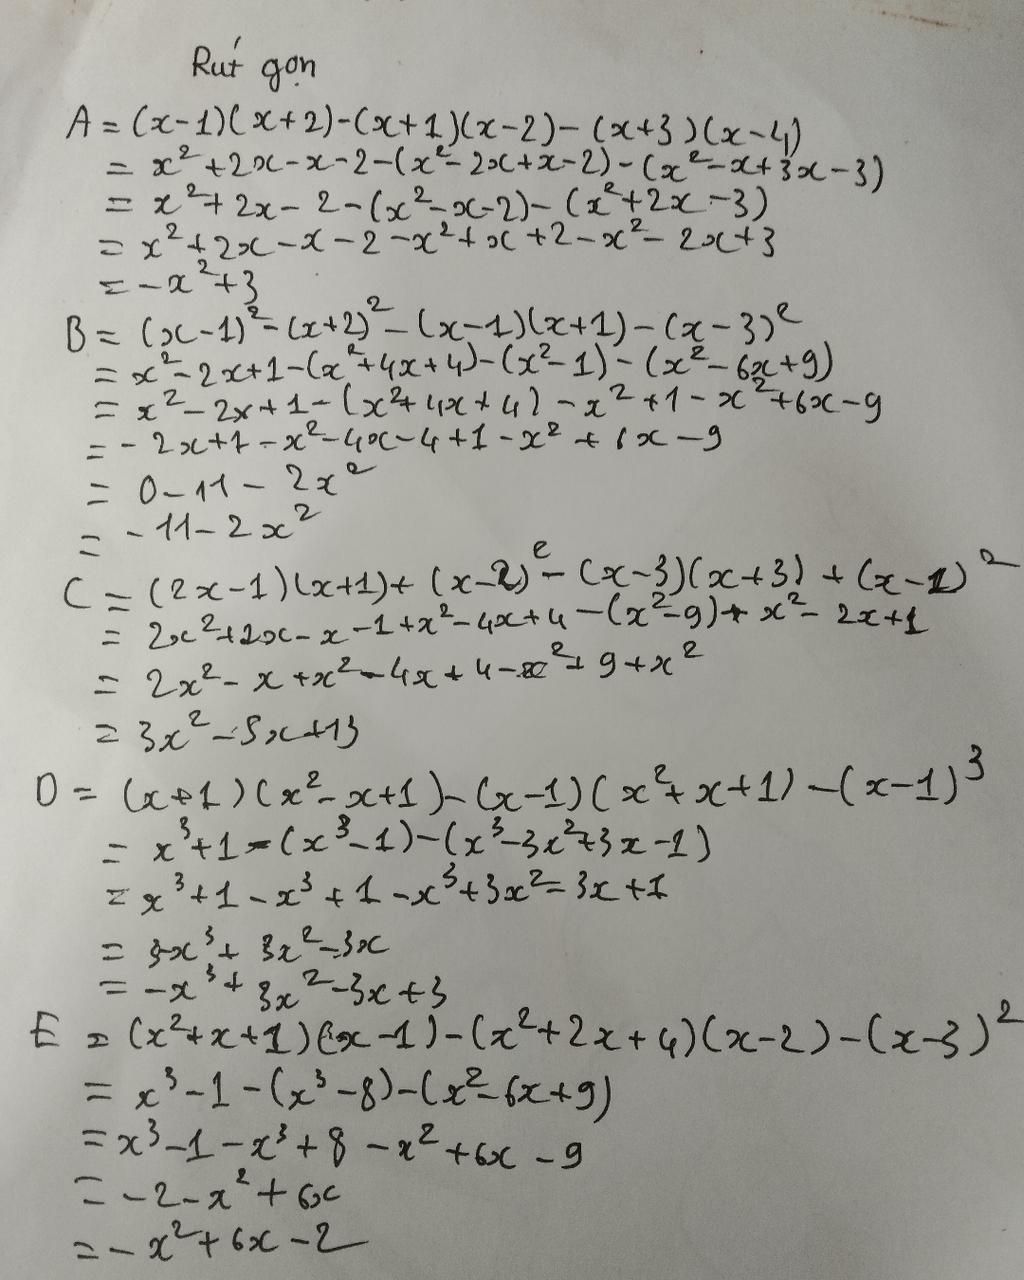 Rút gọn
A = (x-1)(x+2)-(x+1)(x-2)-(x+3)(x-4)
= x²+2x-x-2-(x²-2x+x-2)-(x²-x+3x-3)
= x²+2x-2-(x²-x-2)-(x²+2x-3)
= x²+2x-x-2-x²+x+2-x²-2x+3
= -x²+3
B = (x-1)²-(x+2)²-(x-1)(x+1)-(x-3)²
= x²-2x+1-(x²+4x+4)-(x²-1)-(x²-6x+9)
= x²-2x+1-(x²+4x+4)-x²+1-x²+6x-9
= -2x+1-x²-4x-4+1-x²+6x-9
= 0-11-2x²
= -11-2x²
C = (2x-1)(x+1)+(x-2)²-(x-3)(x+3)+(x-1)²
= 2x²+2x-x-1+x²-4x+4-(x²-9)+x²-2x+1
= 2x²-x+x²-4x+4-x²+9+x²
= 3x²-5x+13
D = (x+1)(x²-x+1)-(x-1)(x²+x+1)-(x-1)³
= x³+1-(x³-1)-(x³-3x²+3x-1)
= x³+1-x³+1-x³+3x²-3x+1
= 3x³+3x²-3x
= -x³+3x²-3x+3
E = (x²+x+1)(x-1)-(x²+2x+4)(x-2)-(x-3)²
= x³-1-(x³-8)-(x²-6x+9)
= x³-1-x³+8-x²+6x-9
= -2-x²+6x
= -x²+6x-2